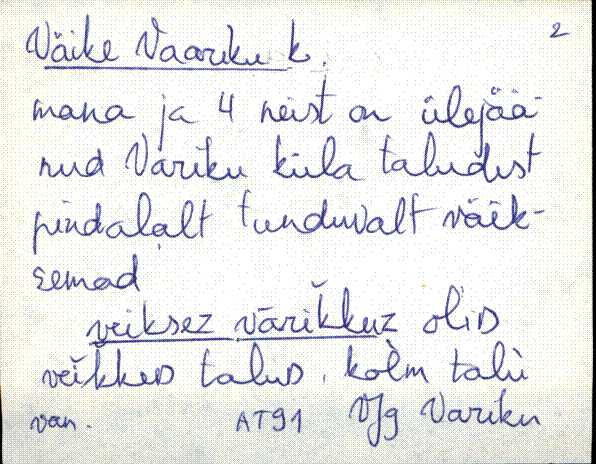 2
Väike Vaariku k.
mana ja 4 neist on ülejää-
nud Variku küla taludest
pindalalt tunduvalt väik-
semad
veiksez vārikkuz olid
veikked talud. kolm talù
van. AT91 Vjg Variku